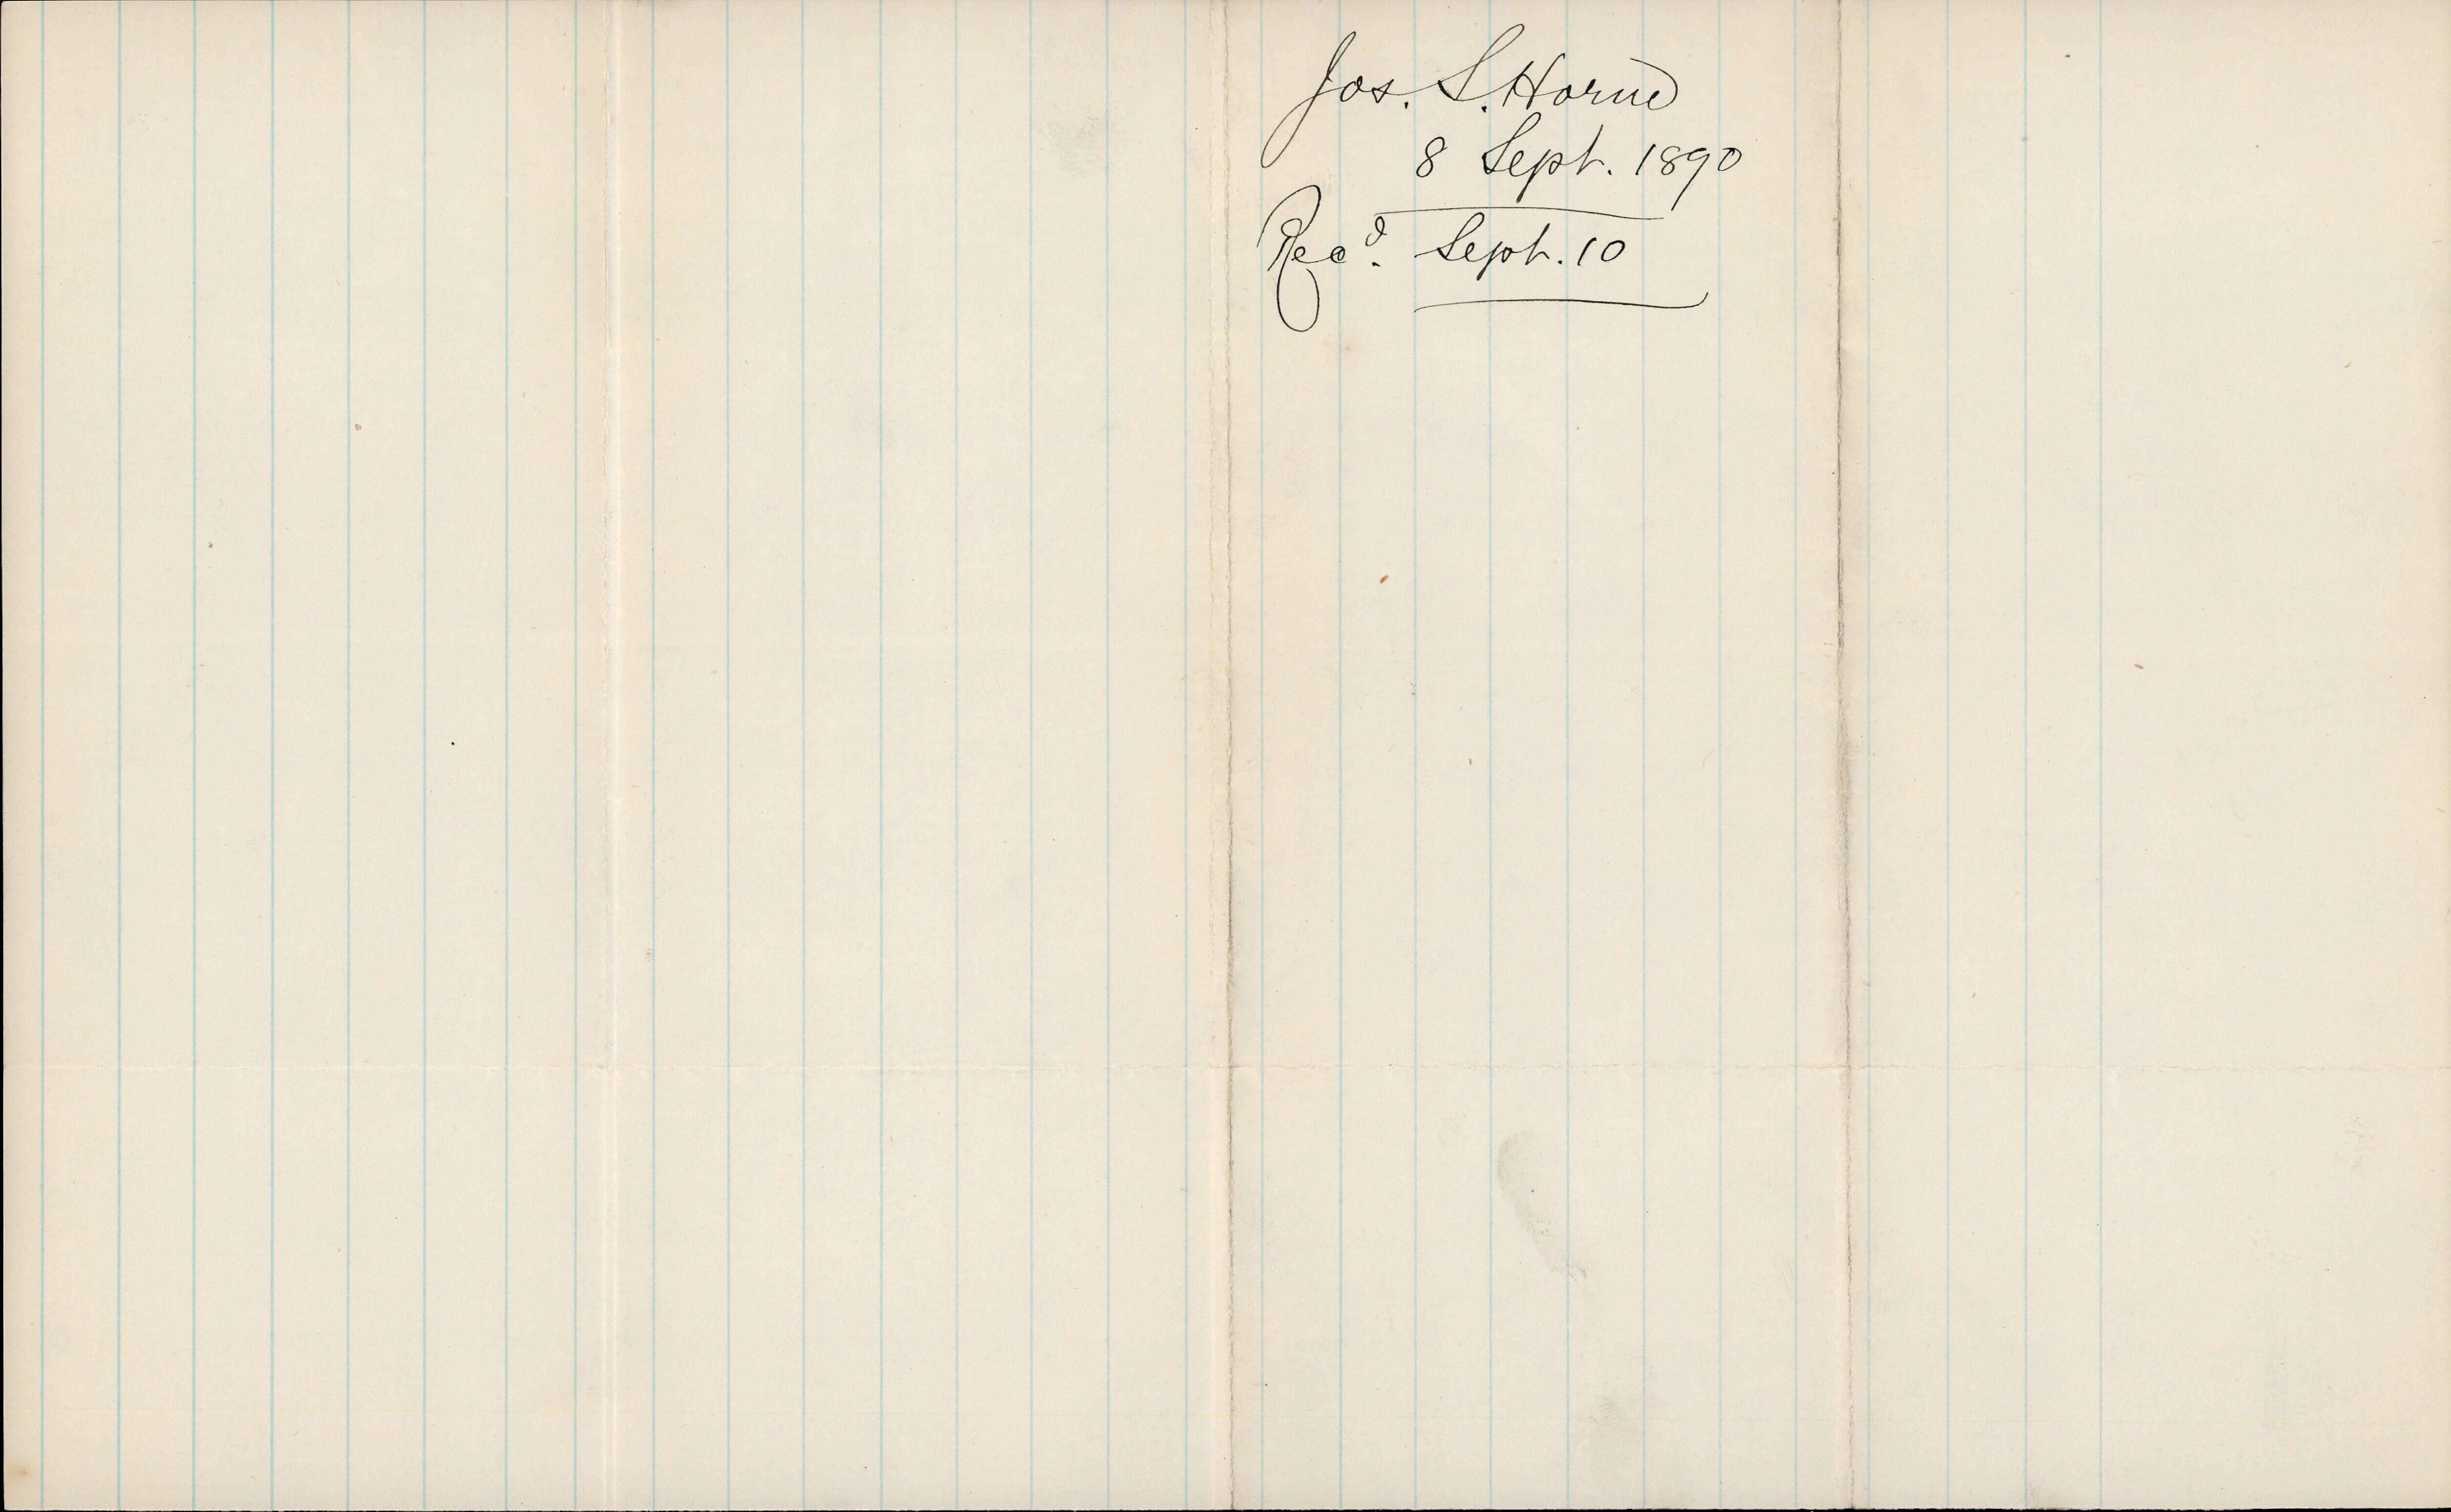 Jos. S. Horne
8 Sept. 1890
Recd. Sept. 10